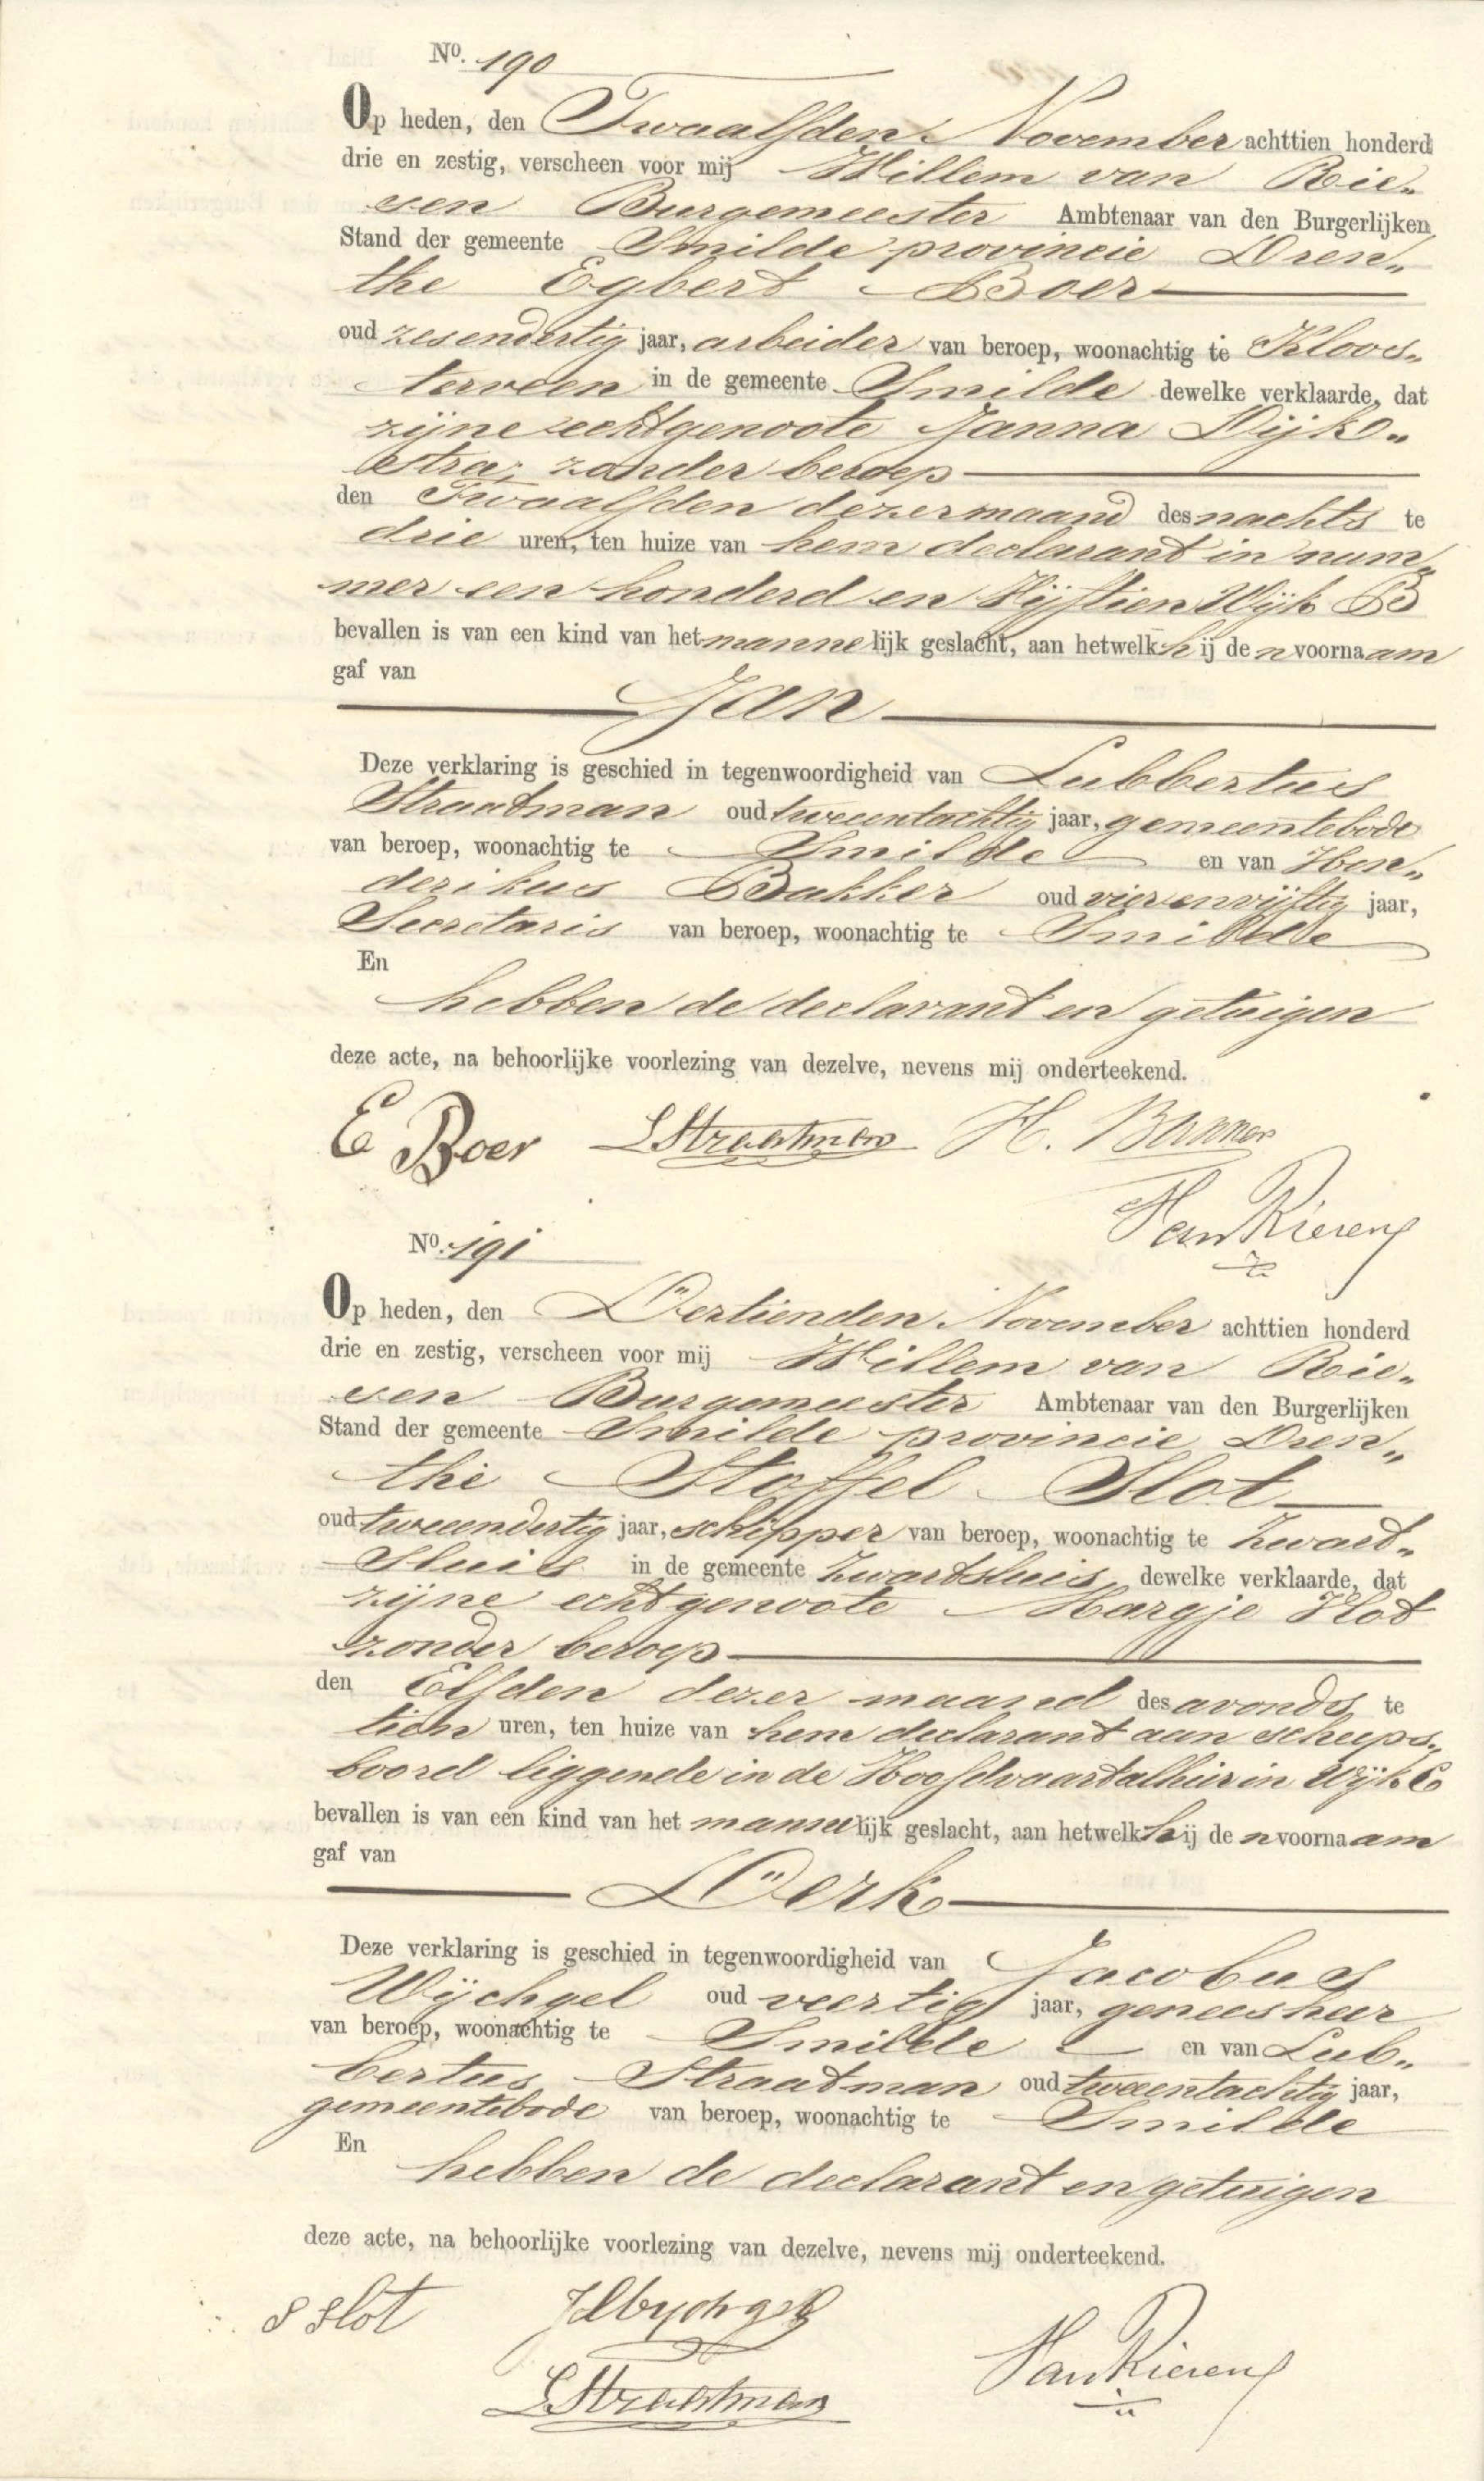 No. 190
Op heden, den Twaalfden November achttien honderd
drie en zestig, verscheen voor mij Willem van Rie„
sen Burgemeester Ambtenaar van den Burgerlijken
Stand der gemeente Smilde provincie Dren„
the Egbert Boer
oud zesendertig jaar, arbeider van beroep, woonachtig te Kloos„
terveen in de gemeente Smilde dewelke verklaarde, dat
zijne echtgenoote Janna Dijk„
stra, zonder beroep
den Twaalfden dezer maand des nachts te
drie uren, ten huize van hem declarant in num„
mer een honderd en Vijftien Wijk B
bevallen is van een kind van het mannelijk geslacht, aan hetwelk hij den voornaam
gaf van
Jan
Deze verklaring is geschied in tegenwoordigheid van Lubbertus
Straatman oud tweeentachtig jaar, gemeentebode
van beroep, woonachtig te Smilde en van Hen„
derikus Bakker oud vierenvijftig jaar,
Secretaris van beroep, woonachtig te Smilde
En
hebben de declarant en getuigen
deze acte, na behoorlijke voorlezing van dezelve, nevens mij onderteekend.
E Boer LStraatman H. Bakker
Van Riesen
No. 191
Op heden, den Dertienden November achttien honderd
drie en zestig, verscheen voor mij Willem van Rie„
sen Burgemeester Ambtenaar van den Burgerlijken
Stand der gemeente Smilde provincie Dren„
the Stoffel Slot
oud tweeendertig jaar, schipper van beroep, woonachtig te Zwart„
Sluis in de gemeente Zwartsluis dewelke verklaarde, dat
zijne echtgenoote Margje Slot
zonder beroep
den Elfden dezer maand des avonds te
tien uren, ten huize van hem declarant aan scheeps„
boord liggende in de Hoofdvaart alhier in Wijk C
bevallen is van een kind van het mannelijk geslacht, aan hetwelk hij den voornaam
gaf van
Derk
Deze verklaring is geschied in tegenwoordigheid van Jacobus
Wijchgel oud veertig jaar, geneesheer
van beroep, woonachtig te Smilde en van Lub„
bertus Straatman oud tweeentachtig jaar,
gemeentebode van beroep, woonachtig te Smilde
En
hebben de declarant en getuigen
deze acte, na behoorlijke voorlezing van dezelve, nevens mij onderteekend.
S Slot JWychgel
LStraatman Van Riesen